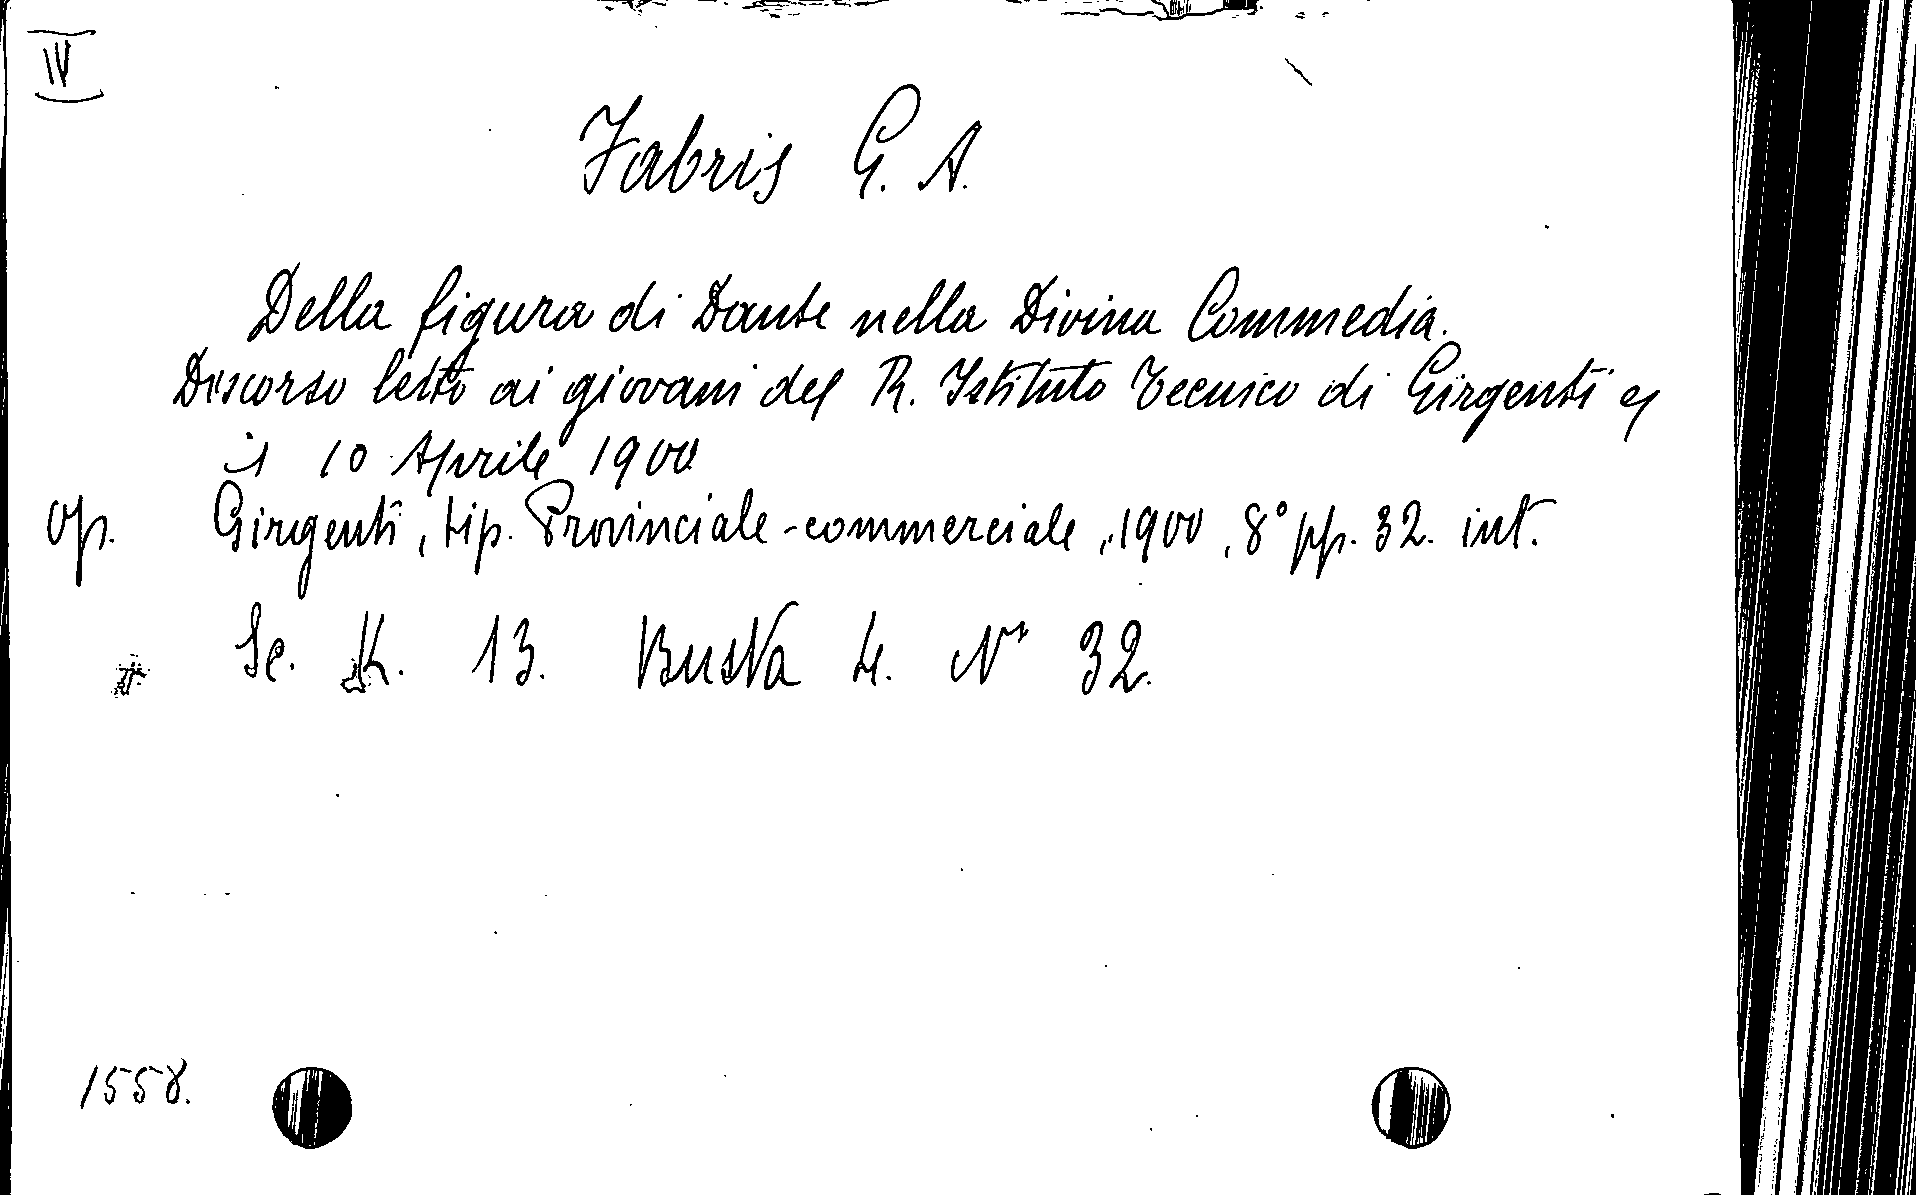 IV
Fabris G. A.
Della figura di Dante nella Divina Commedia.
Discorso letto ai giovani del R. Istituto Tecnico di Girgenti
il 10 Aprile 1900
op. Girgenti, tip. Provinciale-commerciale, 1900, 8° pp. 32. int.
Sc. K. 13. Busta 4. N° 32.
1558.